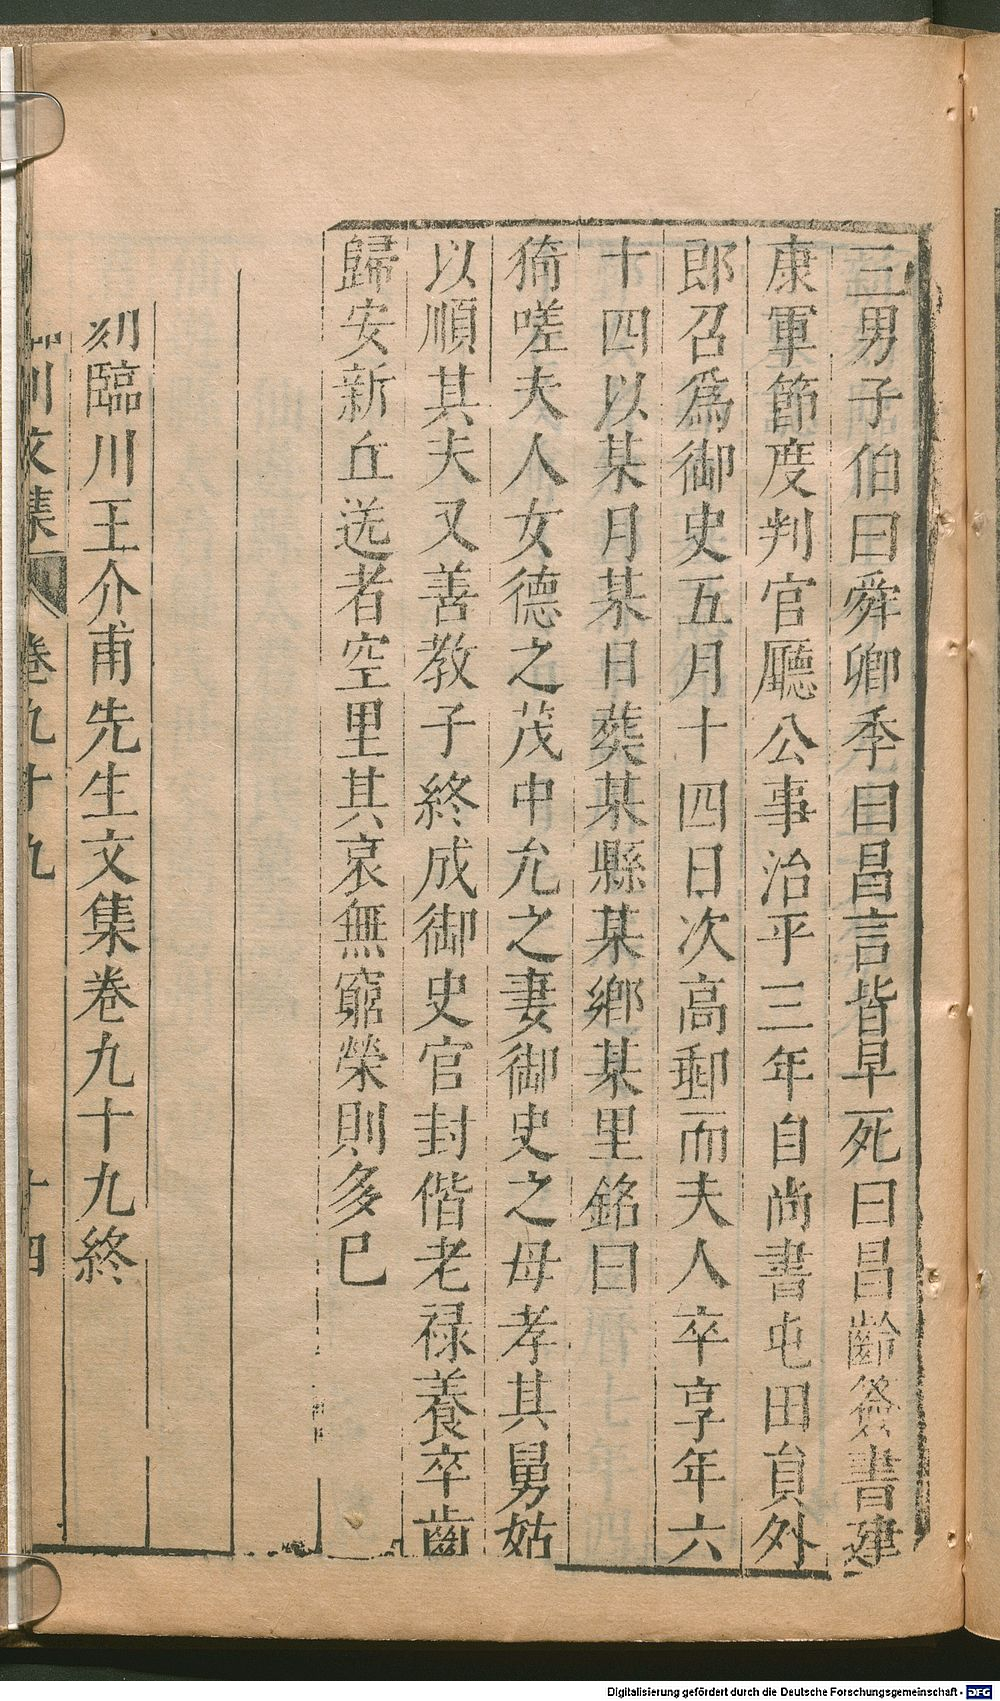 三男子伯曰舜卿季曰昌言皆早死曰昌齡簽書建
康軍節度判官廳公事治平三年自尚書屯田貟外
郎召爲御史五月十四日次高郵而夫人卒享年六
十四以某月某日葬某縣某鄉某里銘曰
猗嗟夫人女德之茂中允之妻御史之母孝其舅姑
以順其夫又善教子終成御史官封偕老祿養卒齒
歸安新丘送者空里其哀無窮榮則多已
刻臨川王介甫先生文集卷九十九終
川文集 卷九十九 十四
Digitalisierung gefördert durch die Deutsche Forschungsgemeinschaft - DFG